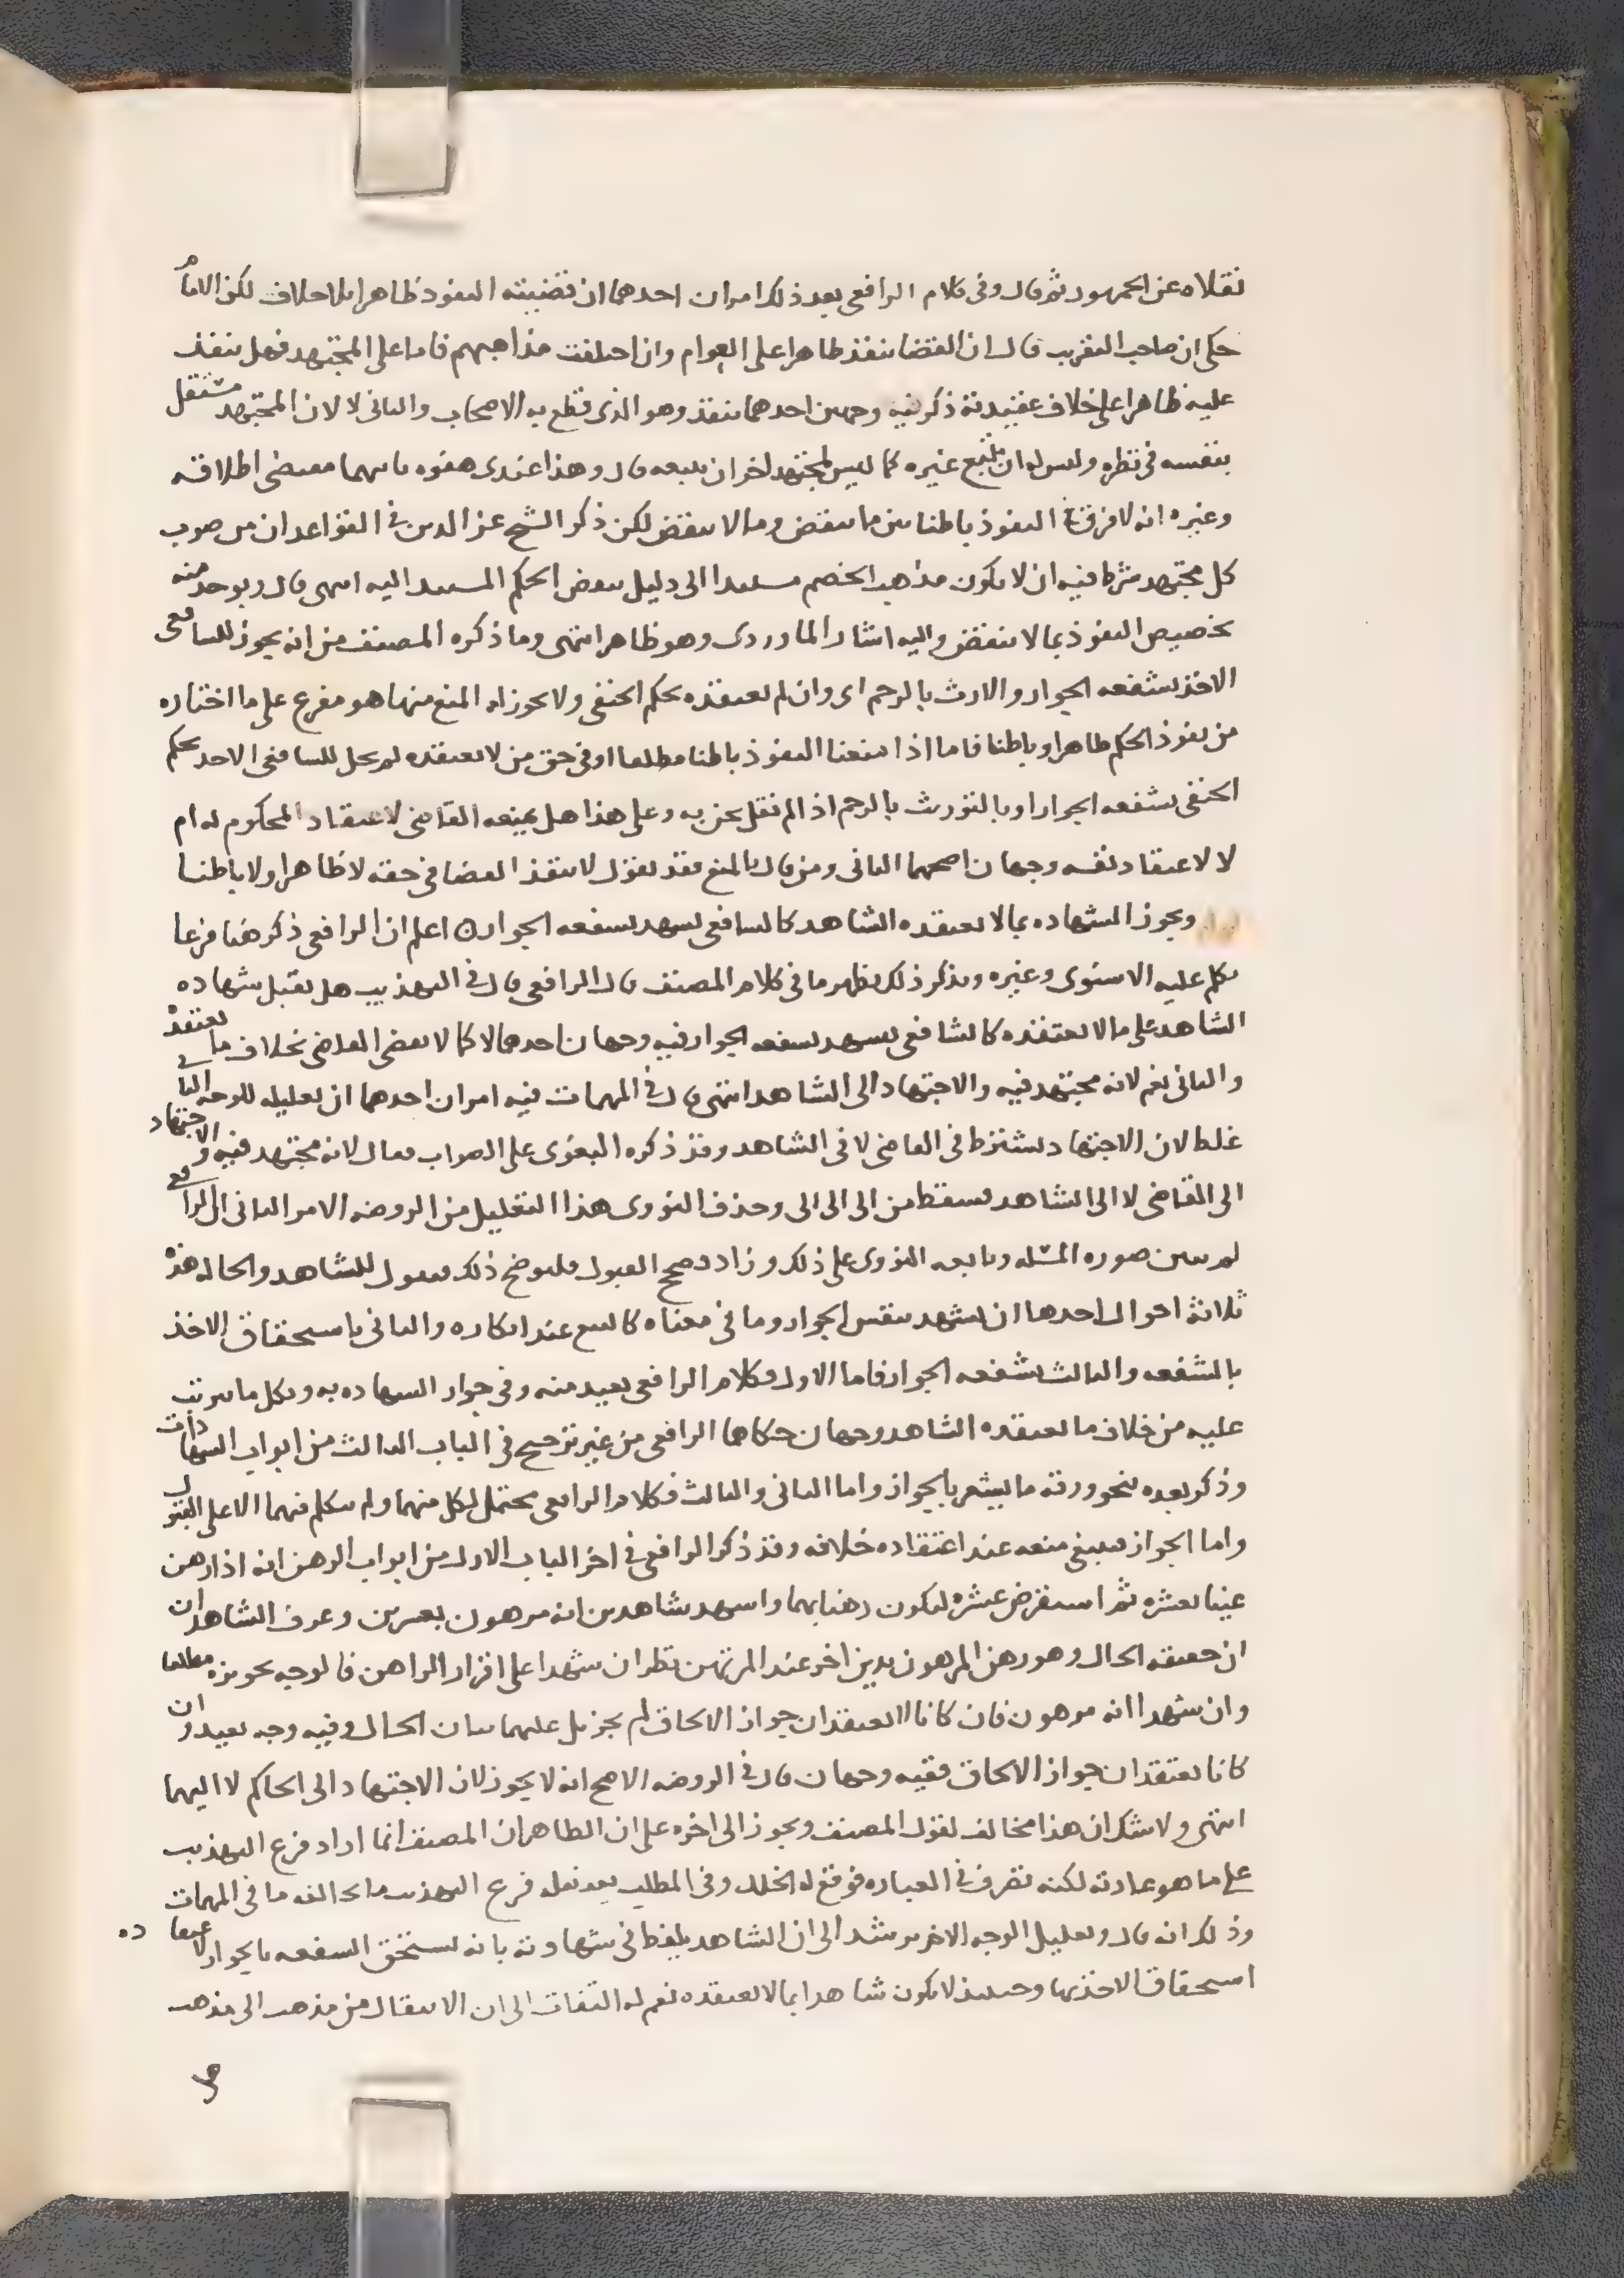 نقلاه عن الجمهور ثم قال وفي كلام الرافعي بعد ذلك امران احدهما ان قضيته النفوذ ظاهرا بلا خلاف لكن الامام
حكى ان صاحب التقريب قال ان القضا ينفذ ظاهرا على العوام وان اختلفت مذاهبهم فاما على المجتهد فهل ينفذ
عليه ظاهرا على خلاف عقيدته ذكر فيه وجهين احدهما ينفذ وهو الذي قطع به الاصحاب والثاني لا لان المجتهد مستقل
بنفسه في نظره وليس له ان يتبع غيره كما ليس لمجتهد اخر ان يتبعه قال وهذا عندي هفوه ثانيهما مقتضى اطلاقه
وغيره انه لا فرق في النفوذ باطنا بين ما ينقض وما لا ينقض لكن ذكر الشيخ عز الدين في القواعد ان من صوب
كل مجتهد شرط فيه ان لا يكون مذاهب الخصم مستندا الى دليل ينقض الحكم المستند اليه انتهى قال ويوخذ منه
تخصيص النفوذ بما لا ينقض واليه اشار الماوردي وهو ظاهر انتهى وما ذكره المصنف من انه يجوز للشافعي
الاخذ بشفعه الجوار والارث بالرحم اي وان لم يعتقده بحكم الحنفي ولا يجوز له المنع منها هو مفرع على ما اختاره
من نفوذ الحكم ظاهرا وباطنا فاما اذا منعنا النفوذ باطنا مطلقا او في حق من لا يعتقده لم يحل للشافعي الاخذ بحكم
الحنفي بشفعه الجوار او بالتوريث بالرحم اذا لم نقل نحن به وعلى هذا هل يمنعه القاضي لاعتقاد المحكوم له ام
لا لاعتقاد نفسه وجهان اصحهما الثاني ومن قال بالمنع فقد يقول لا ينفذ القضا في حقه لا ظاهرا ولا باطنا
ويجوز الشهاده بما لا يعتقده الشاهد كالشافعي يشهد بشفعه الجوار ن اعلم ان الرافعي ذكر هنا فرعا
تكلم عليه الاسنوي وغيره وبذكر ذلك يظهر ما في كلام المصنف قال الرافعي قال في التهذيب هل تقبل شهاده
الشاهد على ما لا يعتقده كالشافعي يشهد بشفعه الجوار فيه وجهان احدهما لا كما لا يقضي القاضي بخلاف ما يعتقده
والثاني نعم لانه مجتهد فيه والاجتهاد الى الشاهد انتهى قال في المهمات فيه امران احدهما ان تعليله للوجه الثاني
غلط لان الاجتهاد يشترط في القاضي لا في الشاهد وقد ذكره البغوي على الصواب فقال لانه مجتهد فيه والاجتهاد
الى القاضي لا الى الشاهد فسقط من الى الى الى وحذف النووي هذا التعليل من الروضه الامر الثاني ان الرافعي
لم يبين صوره المسئله وتابعه النووي على ذلك وزاد فصحح القبول فلنوضح ذلك فنقول للشاهد والحاله هذه
ثلاثة احوال احدها ان يشهد بنفس الجوار وما في معناه كالبيع عند انكاره والثاني باستحقاق الاخذ
بالشفعه والثالث بشفعه الجوار فاما الاول فكلام الرافعي بعيد منه وفي جواز الشهاده به وبكل ما يترتب
عليه من خلاف ما يعتقده الشاهد وجهان حكاهما الرافعي من غير ترجيح في الباب الثالث من ابواب الشهادات
وذكر بعده بنحو ورقه ما يشعر بالجواز واما الثاني والثالث فكلام الرافعي محتمل لكل منهما ولم يتكلم فيهما الا على القبول
واما الجواز فينبغي منعه عند اعتقاده خلافه وقد ذكر الرافعي في اخر الباب الاول من ابواب الرهن انه اذا رهن
عينا بعشره ثم استقرض عشره ليكون رهنا بهما واشهد شاهدين انه مرهون بعشرين وعرف الشاهدان
ان حقيقه الحال وهو رهن المرهون بدين اخر عند المرتهن نظر ان شهدا على اقرار الراهن فالوجه تجويزه مطلقا
وان شهدا انه مرهون فان كانا لا يعتقدان جواز الالحاق لم يجز بل عليهما بيان الحال وفيه وجه بعيد وان
كانا يعتقدان جواز الالحاق ففيه وجهان قال في الروضه الاصح انه لا يجوز لان الاجتهاد الى الحاكم لا اليهما
انتهى ولا شك ان هذا مخالف لقول المصنف ويجوز الى اخره على ان الظاهر ان المصنف انما اراد فرع التهذيب
على ما هو عادته لكنه تصرف في العباره فوقع له الخلل وفي المطلب بعد نقله فرع التهذيب ما يخالف ما في المهمات
وذلك انه قال وتعليل الوجه الاخر يرشد الى ان الشاهد يلفظ في شهادته بانه يستحق الشفعه بالجوار لاعتقاده
استحقاق الاخذ بها وحينئذ لا يكون شاهدا بما لا يعتقده نعم له التفات الى ان الانتقال من مذهب الى مذهب